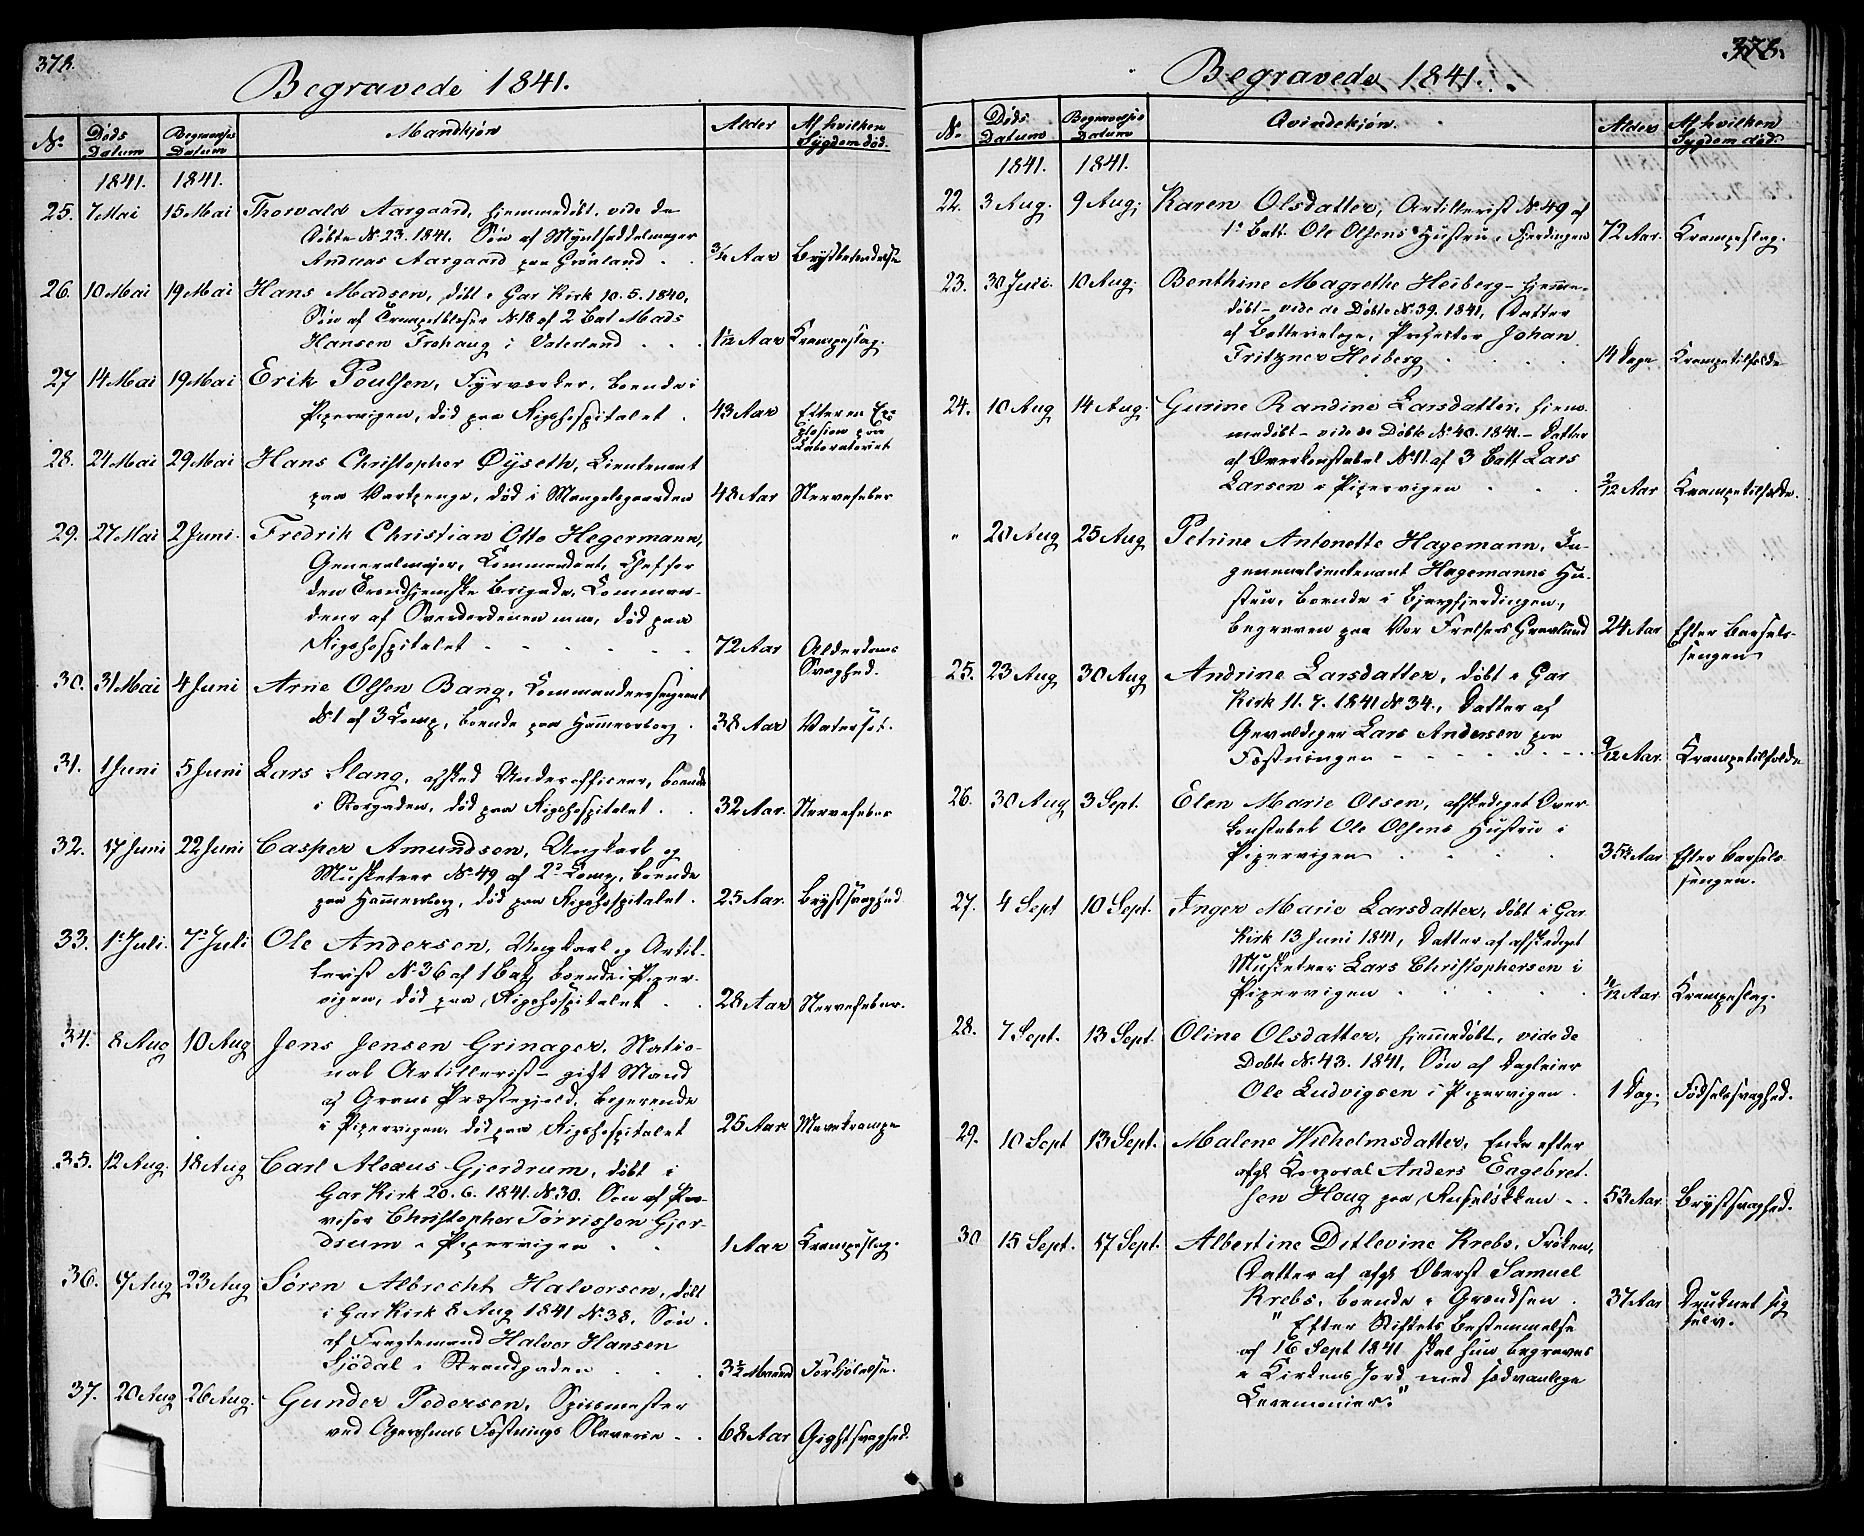 372.
Begravede 1841.
No Døds Datum Begravelses Datum Mandkjøn Alder Af hvilken Sygdom død.
1841. 1841.
25. 7 Mai 15 Mai Thorvald Aargaard, hjemmedøbt, vide de
Døbte No 23. 1841. Søn af Myntseddelmager
Andreas Aargaard paa Grønland . . 3/4 Aar Brystbetændelse
26. 10 Mai 19 Mai Hans Madsen, døbt i Gar Kirk 10.5.1840,
Søn af Trompetblæser No 18 af 2 Bat Mads
Hansen Frohaug i Vaterland . . . 1 1/12 Aar Krampeslag.
27 14 Mai 19 Mai Erik Poulsen, Fyrværker, boende i
Pipervigen, død paa Rigshospitalet . 43 Aar Efter en Ex-
plosion paa
Laboratoriet
28. 24 Mai 29 Mai Hans Christopher Øyseth, Lieutenant
paa Vartpenge, død i Mangelsgaarden 48 Aar Nervefeber
29. 27 Mai 2 Juni. Fredrik Christian Otto Hegermann,
Generalmajor, Commandant, Chef for
den Trondhjemske Brigade, Comman-
deur af Sværdordenen m.m., død paa
Rigshospitalet - - - - - - 72 Aar Alderdoms
Svaghed.
30. 31 Mai 4 Juni Arne Olsen Bang, Commandeersergeant
No 1 af 3 Comp, boende paa Hammersborg . 38 Aar Vatersot.
31. 1 Juni 5 Juni Lars Slang, afsked Underofficeer, boende
i Storgaden, død paa Rigshospitalet . . 32 Aar. Nervefeber
32. 17 Juni 22 Juni Casper Amundsen, Ungkarl og
Musketeer No 49 af 2 Comp, boende
paa Hammersborg, død paa Rigshospitalet . 25 Aar. Brystsvaghed
33. 1 Juli. 7 Juli Ole Andersen, Ungkarl og Artil-
lerist No 36 af 1 Bat, boende i Piper-
vigen, død paa Rigshospitalet . . 28 Aar Nervefeber.
34. 8 Aug 10 Aug Jens Jensen Grinager, Natio-
nal Artillerist - gift Mand
af Grans Præstegjeld,
i Pipervigen, død paa Rigshospitalet 25 Aar Mavekrampe
35. 12 Aug. 18 Aug Carl Alexus Gjerdrum, døbt i
Gar Kirk 20.6.1841. No 30. Søn af Pro-
visor Christopher Tørrissen Gjer-
drum i Pipervigen . . 1 Aar Krampeslag.
36. 17 Aug 23 Aug Søren Albrecht Halvorsen, døbt
i Gar Kirk 8 Aug 1841 No 38. Søn
af Fragtemand Halvor Hansen
Sjødal i Strandgaden . . . 3 1/2 Maaned Forkjølelse.
37. 20 Aug 26 Aug. Gunder Pedersen, Spisemester
ved Agershuus Fæstnings Slaverie . . 68 Aar Gigtsvaghed.
Begravede 1841.
No Døds Datum Begravelses Datum Qvindekjøn. Alder Af hvilken Sygdom død.
1841. 1841.
22. 3 Aug. 9 Aug. Karen Olsdatter, Artillerist No 49 af
1 Batt Ole Olsens Hustru, Fjerdingen 72 Aar. Krampeslag.
23. 30 Juli. 10 Aug. Benthine Magrethe Heiberg - hjemme-
døbt - vide de Døbte No 39. 1841, Datter
af Batterielæge, Prosector Johan
Fritzner Heiberg . . . . 14 Dage Krampetilfælde
24. 10 Aug 14 Aug. Gurine Randine Larsdatter, hjem-
medøbt - vide de Døbte No 40. 1841. - Datter
af Overkonstabel No 11 af 3 Batt Lars
Larsen i Pipervigen . . . 2/12 Aar Krampetilfælde.
" 20 Aug 25 Aug Petrine Antonette Hagemann, In-
genieurlieutenant Hagemanns Hu-
stru, boende i Bjergfjerdingen,
begraven paa Vor Frelsers Gravlund 24 Aar Efter Barsels-
sengen
25. 23 Aug 30 Aug Andrine Larsdatter, døbt i Gar
Kirk 11.7.1841 No 34., Datter af
Gevaldiger Lars Andersen paa
Fæstningen - - - - - - 9/12 Aar. Krampetilfælde
26. 30 Aug 3 Sept. Elen Marie Olsen, afskediget Over
konstabel Ole Olsens Hustru i
Pipervigen . . . . 35 1/2 Aar Efter Barsels
sengen.
27. 4 Sept 10 Sept. Inger Marie Larsdatter, døbt i Gar.
Kirk 13 Juni 1841, Datter af afskediget
Musketeer Lars Christophersen i
Pipervigen . . . . . /12 Aar Krampeslag.
28. 7 Sept. 13 Sept. Oline Olsdatter, hjemmedøbt, vide de
Døbte No 43. 1841. Søn af Dagleier
Ole Ludvigsen i Pipervigen . 1 Dag. Fødselssvaghed.
29. 10 Sept 13 Sept. Malene Wilhelmsdatter, Enke efter
afgk Korporal Anders Engebret-
sen Haug paa Ruseløkken - . 53 Aar. Brystsvaghed.
30 15 Sept. 17 Sept. Albertine Ditlevine Krebs, Frøken,
Datter af afgk Oberst Samuel
Krebs, boende i Grændsen . 37 Aar Druknet sig
selv.
" Efter Stiftets Bestemmelse
af 16 Sept 1841 skal hun begraves
i Kirkens Jord med sædvanlige
Ceremonier."